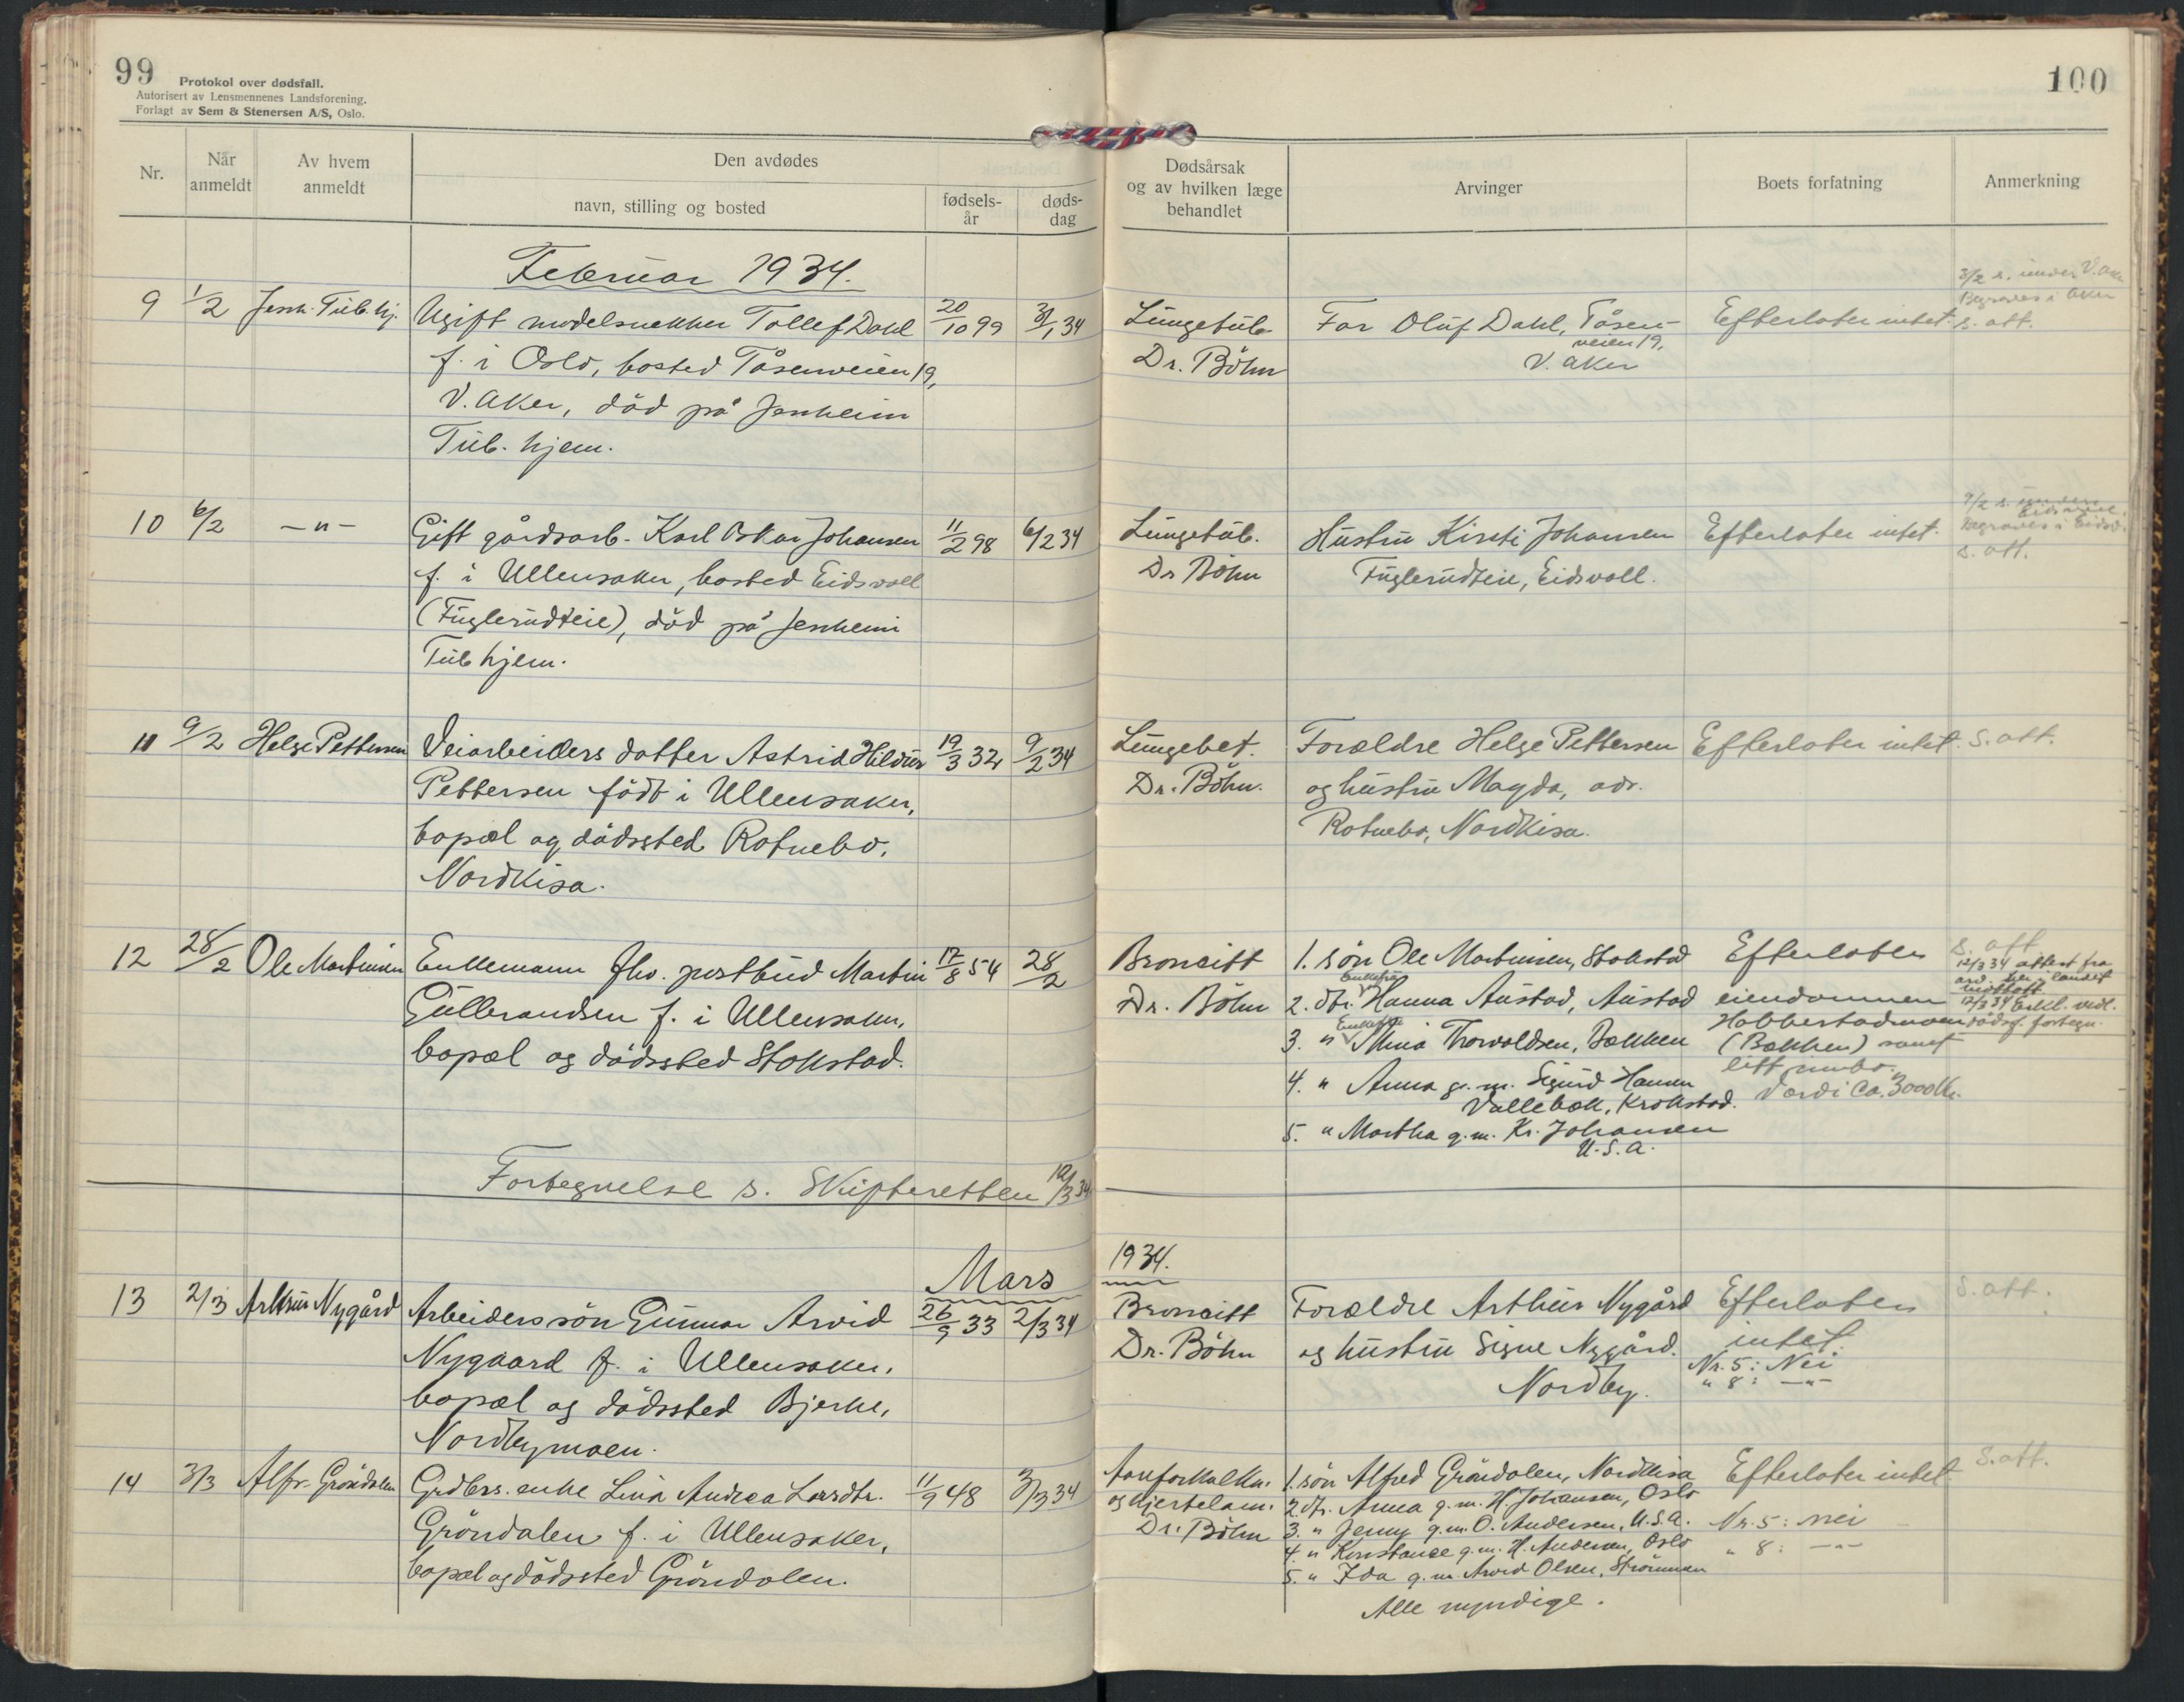 99
Protokol over dødsfall.
Autorisert av Lensmennenes Landsforening.
Forlagt av Sem & Stenersen A/S, Oslo.
Nr.
Når anmeldt
Av hvem anmeldt
Den avdødes
navn, stilling og bosted
fødsels-år
døds-dag
Februar 1934.
9 1/2 Jessh. Tub.hj. Ugift modelsnekker Tollef Dahl 20/10 99 31/1 34
f. i Oslo, bosted Tåsenveien 19,
V. Aker, död på Jessheim
Tub. hjem.
10 6/2 -"- Gift gårdsarb. Karl Oskar Johansen 11/2 98 6/2 34
f. i Ullensaker, bosted Eidsvoll
(Fuglerudteie), död på Jessheim
Tub hjem.
11 9/2 Helge Pettersen Veiarbeiders datter Astrid Hildur 19/3 32 9/2 34
Pettersen födt i Ullensaker,
bopæl og dödssted Rotnebo,
Nordkisa.
12 28/2 Ole Martinsen Enkemann fhv. postbud Martin 17/8 54 28/2
Gulbrandsen f. i Ullensaker,
bopæl og dödssted Stokstad.
Fortegnelse s. Skifteretten 10/3 34
Mars
13 2/3 Arthur Nygård Arbeiders sön Gunnar Arvid 26/9 33 2/3 34
Nygaard f. i Ullensaker,
bopæl og dödssted Bjerke,
Nordbymoen.
14 3/3 Alfr. Gröndalen Grdbrs. enke Lina Andrea Larsdtr. 11/9 48 3/3 34
Gröndalen f. i Ullensaker,
bopæl og dödssted Gröndalen.
100
Dødsårsak
og av hvilken læge
behandlet
Arvinger
Boets forfatning
Anmerkning
3/2 s. under V. Aker
Begraves i Aker
Lungetub Far Oluf Dahl, Tåsen- Efterlater intet. s. att.
veien 19,
Dr. Böhm V. Aker
9/2 s.
Eidsvoll.
Begraves i Eidsv.
Lungetub. Hustru Kirsti Johansen Efterlater intet. s. att.
Dr Böhm Fuglerudteie, Eidsvoll.
Lungebet. Forældre Helge Pettersen Efterlater intet. s. att.
Dr. Böhm. og hustru Magda, adr.
Rotnebo, Nordkisa.
Broncitt 1. sön Ole Martinsen, Stokstad Efterlater s. att
12/3 34 attest fra
Enkefru
Dr. Böhm 2. dtr. Hanna Austad, Austad eiendommen
12/3 34 Erkl. vedl.
Enkefru
3. " Mina Thorvaldsen, Bakken Habberstadmoen dödsf. fortegn.
(Bakken) samt
litt innbo.
4. " Anna g. m. Sigurd Hansen
Vallebæk, Krokstad. Verdi ca. 3000 kr.
5. " Martha g. m. Kr. Johansen
U.S.A.
1934.
Broncitt Forældre Arthur Nygård Efterlater s. att.
Dr. Böhm og hustru Signe Nygård. intet.
Nordby. Nr. 5: Nei
" 8: -"-
og hjertelam. 1. sön Alfred Gröndalen, Nordkisa Efterlater intet s. att.
2. dtr. Anna g. m. H. Johansen, Oslo
Dr. Böhm 3. " Jenny g. m. O. Andersen, U.S.A. Nr. 5: nei
4. " Konstance g. m. H. Andersen, Oslo " 8: -"-
5. " Ida g. m. Arvid Olsen, Strömmen
Alle myndige.